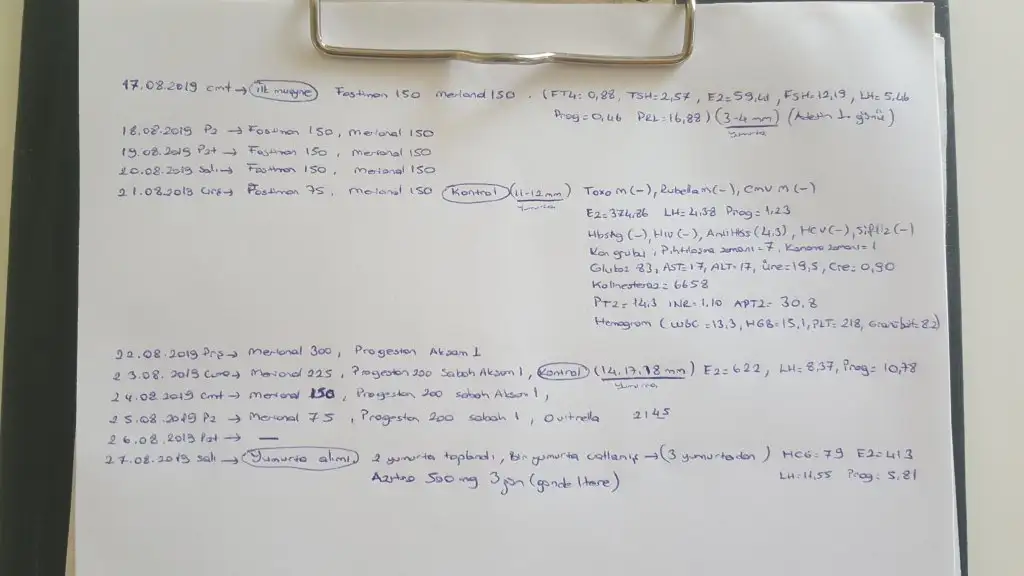 17.08.2019 cmt → ilk muayne Fostimon 150 merional 150. (FT4=0,88, TSH=2,57, E2=59,41, FSH=12,19, LH=5,46
Prog=0,46 PRL=16,88) (3-4 mm) (Adetin 1. günü)
yumurta
18.08.2019 Pz → Fostimon 150, merional 150
19.08.2019 Pzt → Fostimon 150, merional 150
20.08.2019 Salı → Fostimon 150, merional 150
21.08.2019 Çarş → Fostimon 75, merional 150 Kontrol (11-12 mm) Toxo M (-), Rubella M (-), CMV M (-)
yumurta
E2=374,86 LH=4,38 Prog=1,23
HbsAg (-), HIV (-), AntiHBS (4,3), HCV (-), Sifiliz (-)
Kan grubu, Pıhtılaşma zamanı=7, Kanama zamanı=1
Glukoz 83, AST=17, ALT=17, Üre=19,5, Cre=0,90
Kolinesteraz=6658
PTZ=14,3 INR=1,10 APTZ=30,8
Hemogram (WBC=13,3, HGB=15,1, PLT=218, Granülosit=82)
22.08.2019 Prş → Merional 300, Progestan Akşam 1
23.08.2019 Cuma → Merional 225, Progestan 200 Sabah Akşam 1, Kontrol (14.17.18 mm) E2=622, LH=8,37, Prog=10,78
yumurta
24.08.2019 Cmt → merional 150, Progestan 200 sabah Akşam 1,
25.08.2019 Pz → Merional 75, Progestan 200 sabah 1, Ovitrella 21 45
26.08.2019 Pzt → —
27.08.2019 Salı → Yumurta alımı, 2 yumurta toplandı, Bir yumurta çatlamış → (3 yumurtadan) HCG=79 E2=413
Azitro 500 mg 3 gün (günde 1 tane) LH=11,55 Prog=5,81